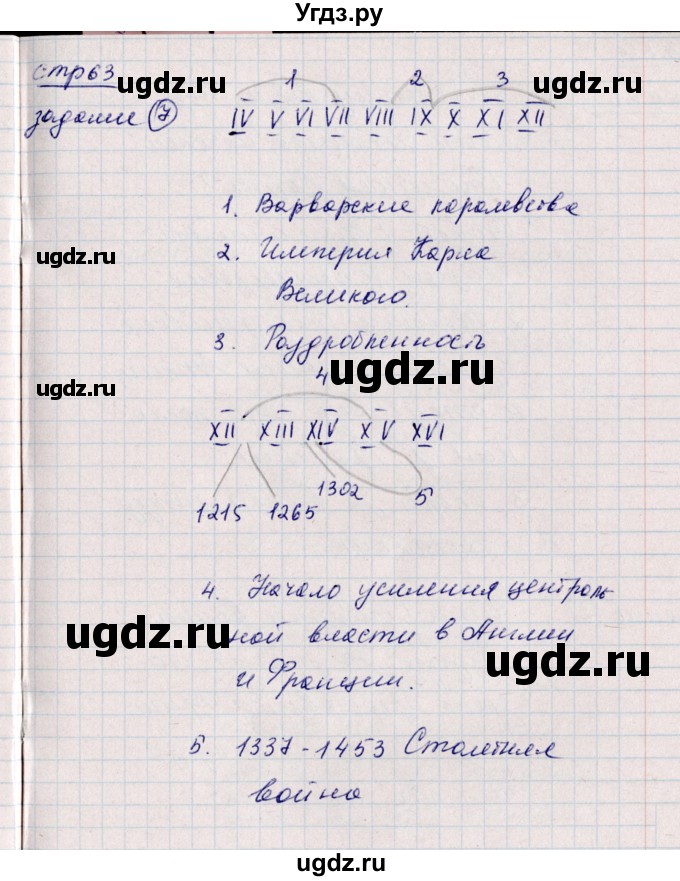 Угдз.ру
стр63
ugdz.ru
1
2
3
ugdz.ru
задание 7
IV V VI VII VIII IX X XI XII
1. Варварские королевства
ugdz.ru
2. Империя Карла
ugdz.ru
Великого.
3. Раздробленность
ugdz.ru
4
ugdz.ru
XII XIII XIV XV XVI
1302
5
1215 1265
4. Начало усиления централь
ной власти в Англии
ugdz.ru
и Франции.
ugdz.ru
5. 1337-1453 Столетняя
война
ugdz.ru
ugdz.ru